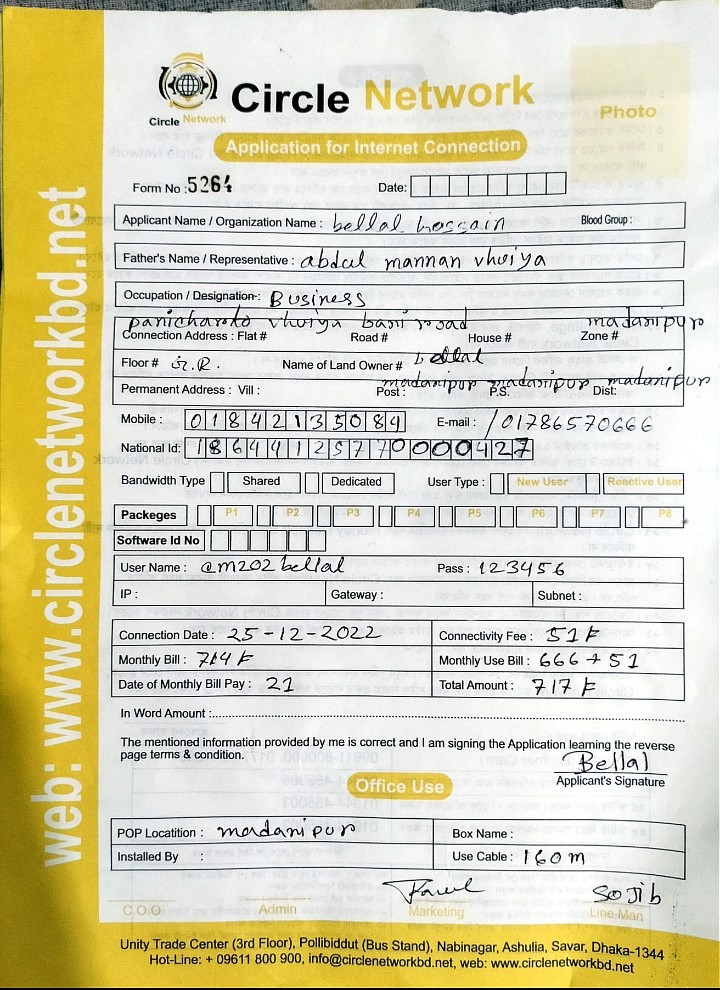 web: www.circlenetworkbd.net
Circle Network
Circle Network
Photo
Application for Internet Connection
Form No : 5264
Date:
Applicant Name / Organization Name : bellal hossain Blood Group :
Father's Name / Representative : abdul mannan vhuiya
Occupation / Designation : Business
vhuiya bari road madaripur
Connection Address : Flat # Road # House # Zone #
Floor # G.R. Name of Land Owner # bellal
madaripur madaripur madaripur
Permanent Address : Vill : Post : P.S. Dist:
Mobile : 01842135084 E-mail : /01786570666
National Id: 18644125770000427
Bandwidth Type Shared Dedicated User Type : New User Reactive User
Packeges P1 P2 P3 P4 P5 P6 P7 P8
Software Id No
User Name : @m202bellal Pass : 123456
IP : Gateway : Subnet :
Connection Date : 25-12-2022 Connectivity Fee : 51
Monthly Bill : 714 Monthly Use Bill : 666 + 51
Date of Monthly Bill Pay : 21 Total Amount : 717
In Word Amount :
The mentioned information provided by me is correct and I am signing the Application learning the reverse
page terms & condition.
Bellal
Applicant's Signature
Office Use
POP Locatition : madaripur Box Name :
Installed By : Use Cable : 160m
Sojib
C.O.O Admin Marketing Line Man
Unity Trade Center (3rd Floor), Pollibiddut (Bus Stand), Nabinagar, Ashulia, Savar, Dhaka-1344
Hot-Line: + 09611 800 900, info@circlenetworkbd.net, web: www.circlenetworkbd.net